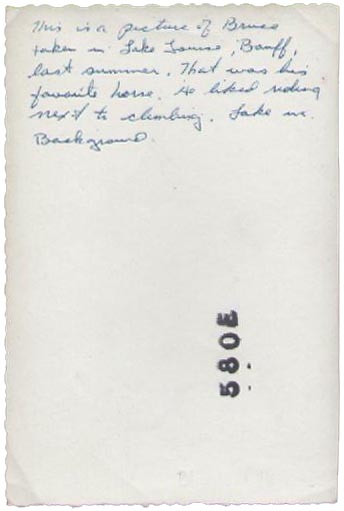 This is a picture of Bruce
taken in Lake Louise, Banff,
last summer. That was his
favorite horse. He liked riding
next to climbing. Lake in
Background.
5805